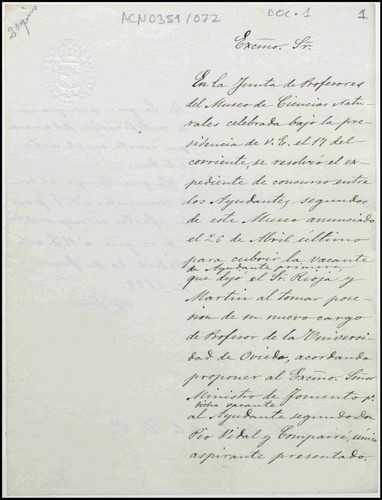 ACN0351/072
DOC. 1
1
Excmo. Sr.
En la Junta de Profesores
del Museo de Ciencias Natu-
rales celebrada bajo la pre-
sidencia de V.E. el 17 del
corriente, se resolvió el ex-
pediente de concurso entre
los Ayudantes segundos
de este Museo anunciado
el 26 de Abril último
para cubrir la vacante
de Ayudante primero,
que dejo el Sr. Rioja y
Martin al tomar pose-
sion de su nuevo cargo
de Profesor de la Universi-
dad de Oviedo, acordando
proponer al Excmo. Señor
Ministro de Fomento pª
dicha vacante
al Ayudante segundo Don
Pio Vidal y Compairé, único
aspirante presentado.